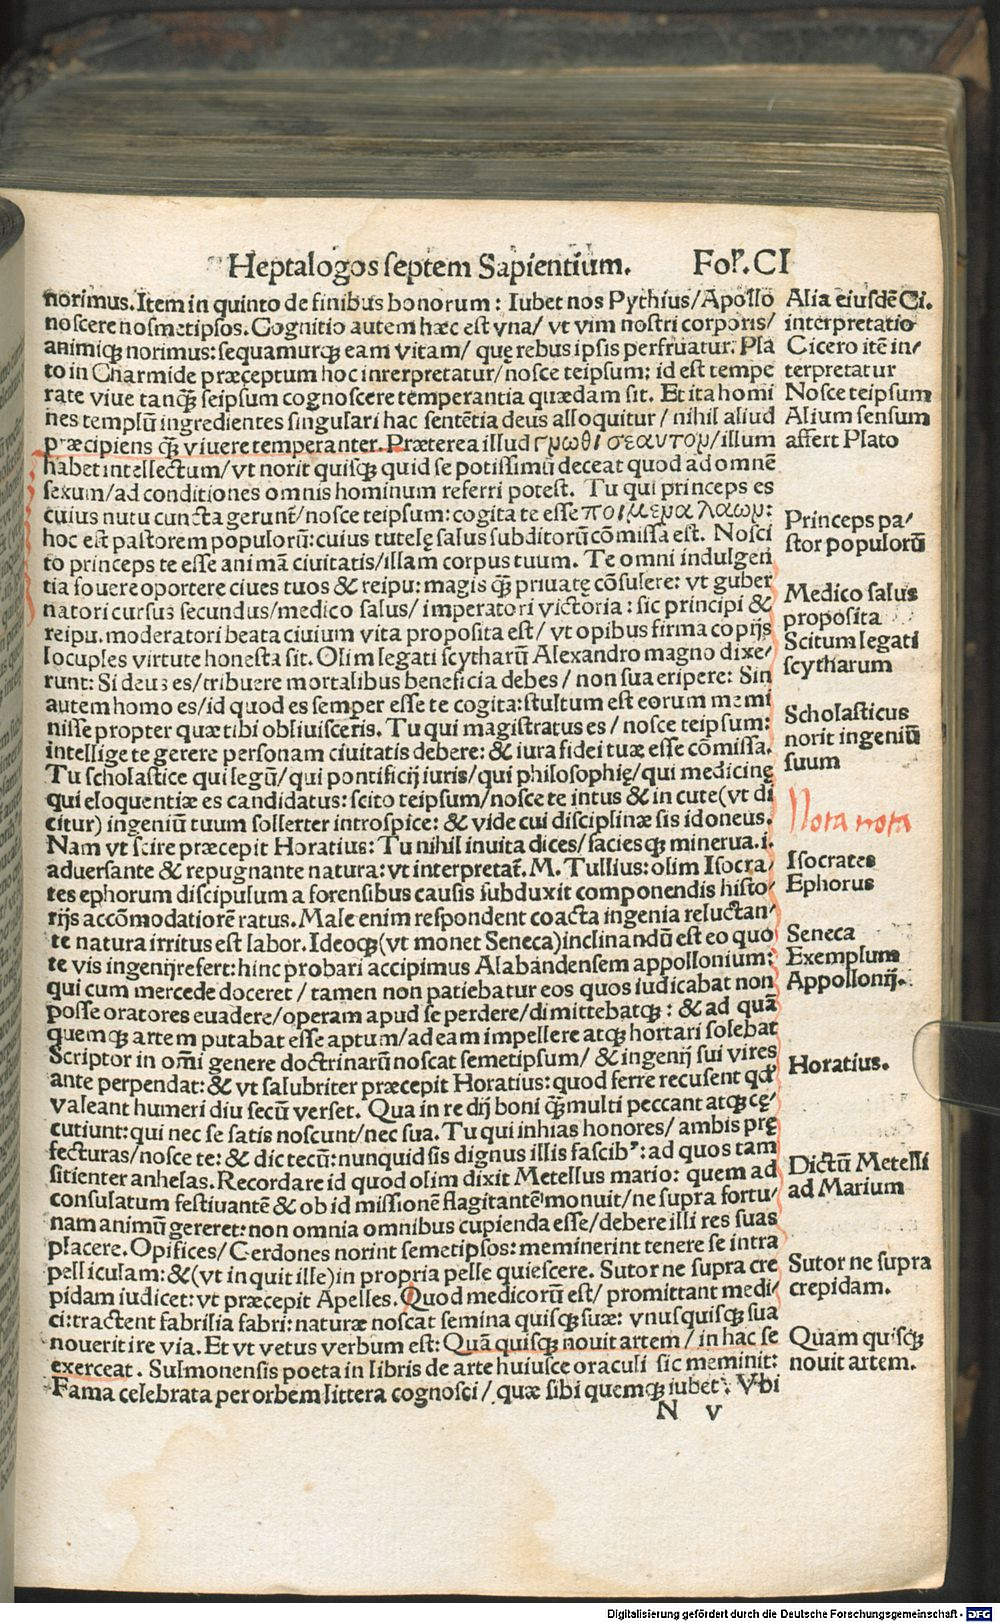 Heptalogos septem Sapientium. Foꝉ. CI
norimus. Item in quinto de finibus bonorum: Iubet nos Pythius/Apollo
noscere nosmetipsos. Cognitio autem hæc est vna/ vt vim nostri corporis/
animiqꝫ norimus: sequamurqꝫ eam vitam/ quę rebus ipsis perfruatur. Pla
to in Charmide præceptum hoc inrerpretatur/nosce teipsum: id est tempe
rate viue tanqꝫ̃ seipsum cognoscere temperantia quædam sit. Et ita homi
nes templū ingredientes singulari hac sentētia deus alloquitur/nihil aliud
præcipiens qꝫ̃ viuere temperanter. Præterea illud γμωθι σεαυτομ/illum
habet intellectum/vt norit quisqꝫ quid se potissimū deceat quod ad omnē
sexum/ad conditiones omnis hominum referri potest. Tu qui princeps es
cuius nutu cuncta gerunt̃/nosce teipsum: cogita te esse ποιμεμα λαωμ:
hoc est pastorem populorū: cuius tutelę salus subditorū cōmissa est. Nosci
to princeps te esse animā ciuitatis/illam corpus tuum. Te omni indulgen
tia fouere oportere ciues tuos & reipu: magis qꝫ̃ priuatę cōsulere: vt guber
natori cursus secundus/medico salus/ imperatori victoria: sic principi &
reipu. moderatori beata ciuium vita proposita est/ vt opibus firma copijs
locuples virtute honesta sit. Olim legati scytharū Alexandro magno dixe/
runt: Si deus es/tribuere mortalibus beneficia debes/ non sua eripere: Sin
autem homo es/id quod es semper esse te cogita: stultum est eorum memi
nisse propter quæ tibi obliuisceris. Tu qui magistratus es/ nosce teipsum:
intellige te gerere personam ciuitatis debere: & iura fidei tuæ esse cōmissa.
Tu scholastice qui legū/qui pontificij iuris/qui philosophię/qui medicinę
qui eloquentiæ es candidatus: scito teipsum/nosce te intus & in cute(vt di
citur) ingeniū tuum sollerter introspice: & vide cui disciplinæ sis idoneus.
Nam vt scire præcepit Horatius: Tu nihil inuita dices/faciesqꝫ minerua. i.
aduersante & repugnante natura: vt interpretat̃. M. Tullius: olim Isocra/
tes ephorum discipulum a forensibus causis subduxit componendis histo/
rijs accōmodatiorē ratus. Male enim respondent coacta ingenia reluctan/
te natura irritus est labor. Ideoqꝫ(vt monet Seneca)inclinandū est eo quo
te vis ingenij refert: hinc probari accipimus Alabandensem appollonium:
qui cum mercede doceret/ tamen non patiebatur eos quos iudicabat non
posse oratores euadere/operam apud se perdere/dimittebatqꝫ: & ad quā
quemqꝫ artem putabat esse aptum/ad eam impellere atqꝫ hortari solebat
Scriptor in om̃i genere doctrinarū noscat semetipsum/ & ingenij sui vires
ante perpendat: & vt salubriter præcepit Horatius: quod ferre recusent qđ
valeant humeri diu secū verset. Qua in re dij boni qꝫ̃ multi peccant atqꝫ cę/
cutiunt: qui nec se satis noscunt/nec sua. Tu qui inhias honores/ambis prę
fecturas/nosce te: & dic tecū: nunquid sis dignus illis fascibꝰ: ad quos tam
sitienter anhelas. Recordare id quod olim dixit Metellus mario: quem ad
consulatum festiuantē & ob id missionē flagitantē monuit/ne supra fortu/
nam animū gereret: non omnia omnibus cupienda esse/debere illi res suas
placere. Opifices/Cerdones norint semetipsos: meminerint tenere se intra
pelliculam: &(vt inquit ille)in propria pelle quiescere. Sutor ne supra cre
pidam iudicet: vt præcepit Apelles. Quod medicorū est/ promittant medi/
ci: tractent fabrilia fabri: naturæ noscat semina quisqꝫ suæ: vnusquisqꝫ sua
nouerit ire via. Et vt vetus verbum est: Quā quisqꝫ nouit artem/ in hac se
exerceat. Sulmonensis poeta in libris de arte huiusce oraculi sic meminit:
Fama celebrata per orbem littera cognosci/ quæ sibi quemqꝫ iubet. Vbi
N v
Alia eiusdē Ci.
interpretatio
Cicero itē in/
terpretatur
Nosce teipsum
Alium sensum
affert Plato
Princeps pa/
stor populorū
Medico salus
proposita
Scitum legati
scytharum
Scholasticus
norit ingeniū
suum
Nota nota
Isocrates
Ephorus
Seneca
Exemplum
Appollonij.
Horatius.
Dictū Metelli
ad Marium
Sutor ne supra
crepidam.
Quam quisqꝫ
nouit artem.
Digitalisierung gefördert durch die Deutsche Forschungsgemeinschaft - DFG